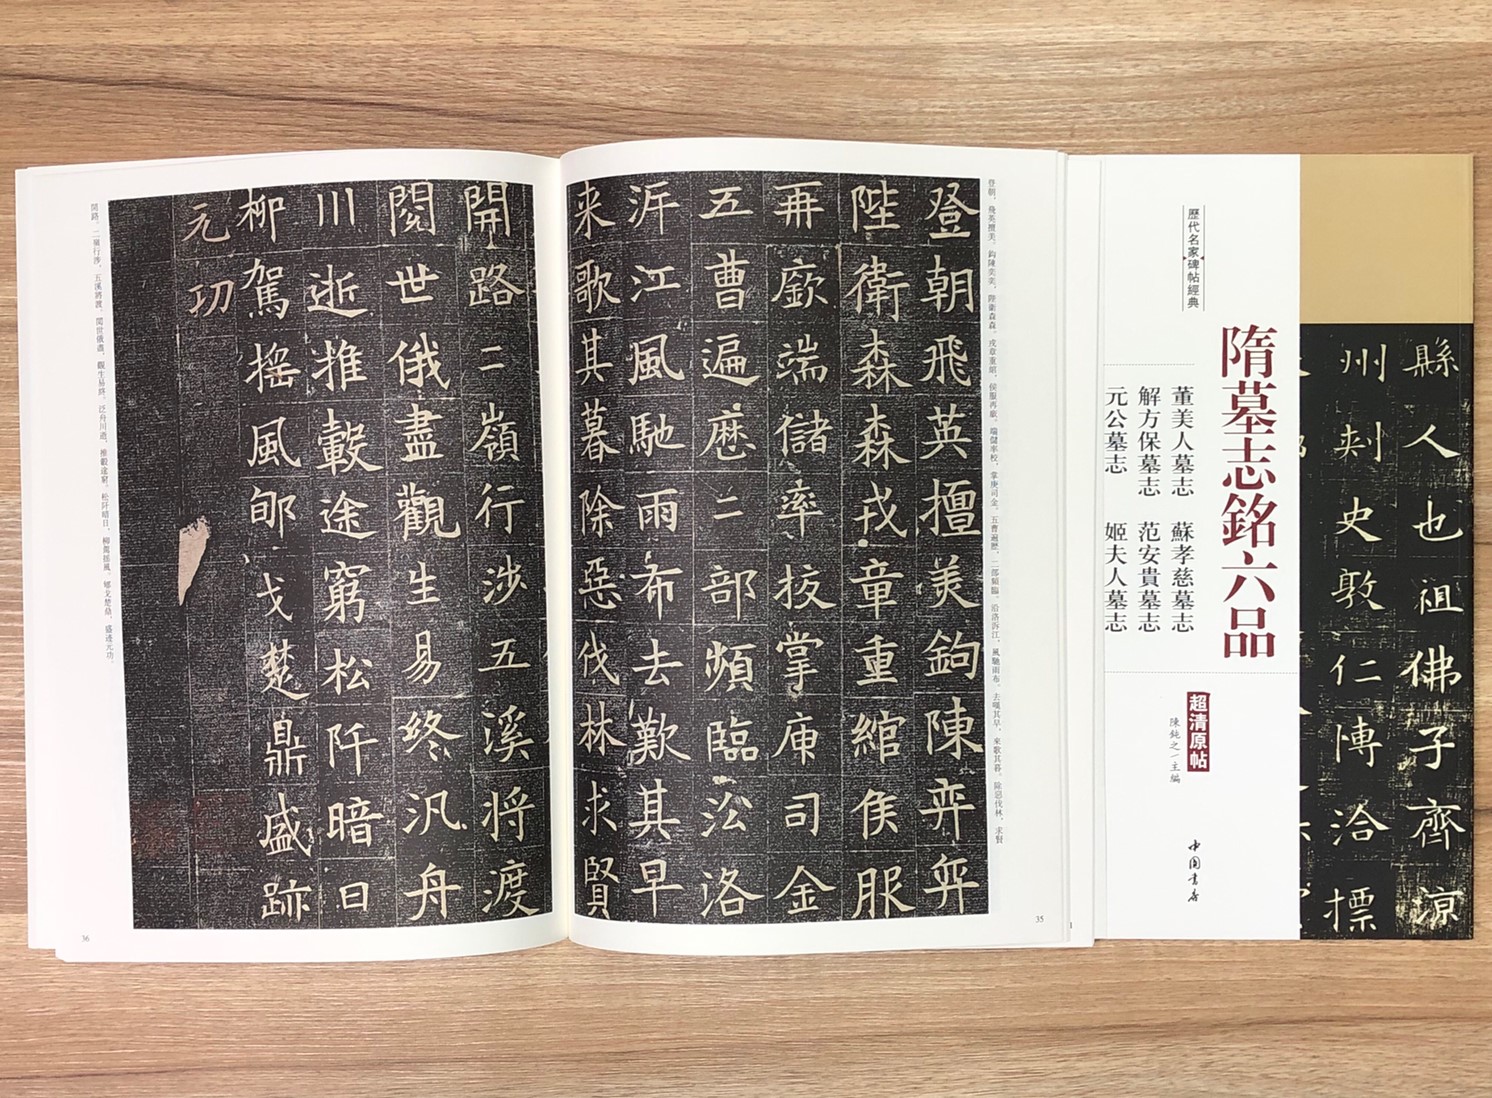 縣人也祖佛子齊涼
州刺史敦仁博洽標
隋墓志銘六品
歷代名家碑帖經典
董美人墓志 蘇孝慈墓志
解方保墓志 范安貴墓志
元公墓志 姬夫人墓志
超清原帖
陳鈍之 主編
中國書店
登朝、飛英擅美。鈎陳奕奕、陛衛森森。戎章重綰、侯服再廞。端儲率校、掌庾司金。五曹遍歷、二部頻臨。沿洛泝江、風馳雨布。去嘆其早、來歌其暮。除惡伐林、求賢
登朝飛英擅美鉤陳弈弈
陛衛森森戎章重綰侯服
再廞端儲率校掌庾司金
五曹遍歷二部頻臨沿洛
泝江風馳雨布去歎其早
来歌其暮除惡伐林求賢
35
開路二嶺行涉五溪將渡
閱世俄盡觀生易終汎舟
川逝推轂途窮松阡暗日
柳駕摇風郇戈楚鼎盛跡
元功
開路。二嶺行涉、五溪將渡。閱世俄盡、觀生易終。泛舟川逝、推轂途窮。松阡暗日、柳駕搖風。郇戈楚鼎、盛迹元功。
36